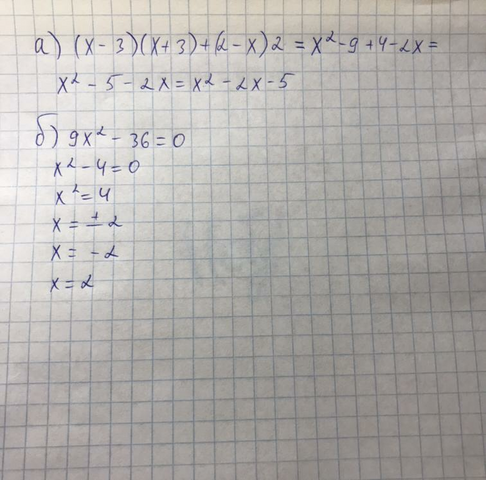 а) (x-3)(x+3)+(2-x)2 = x²-9+4-2x=
x²-5-2x=x²-2x-5
б) 9x²-36=0
x²-4=0
x²=4
x=±2
x=-2
x=2